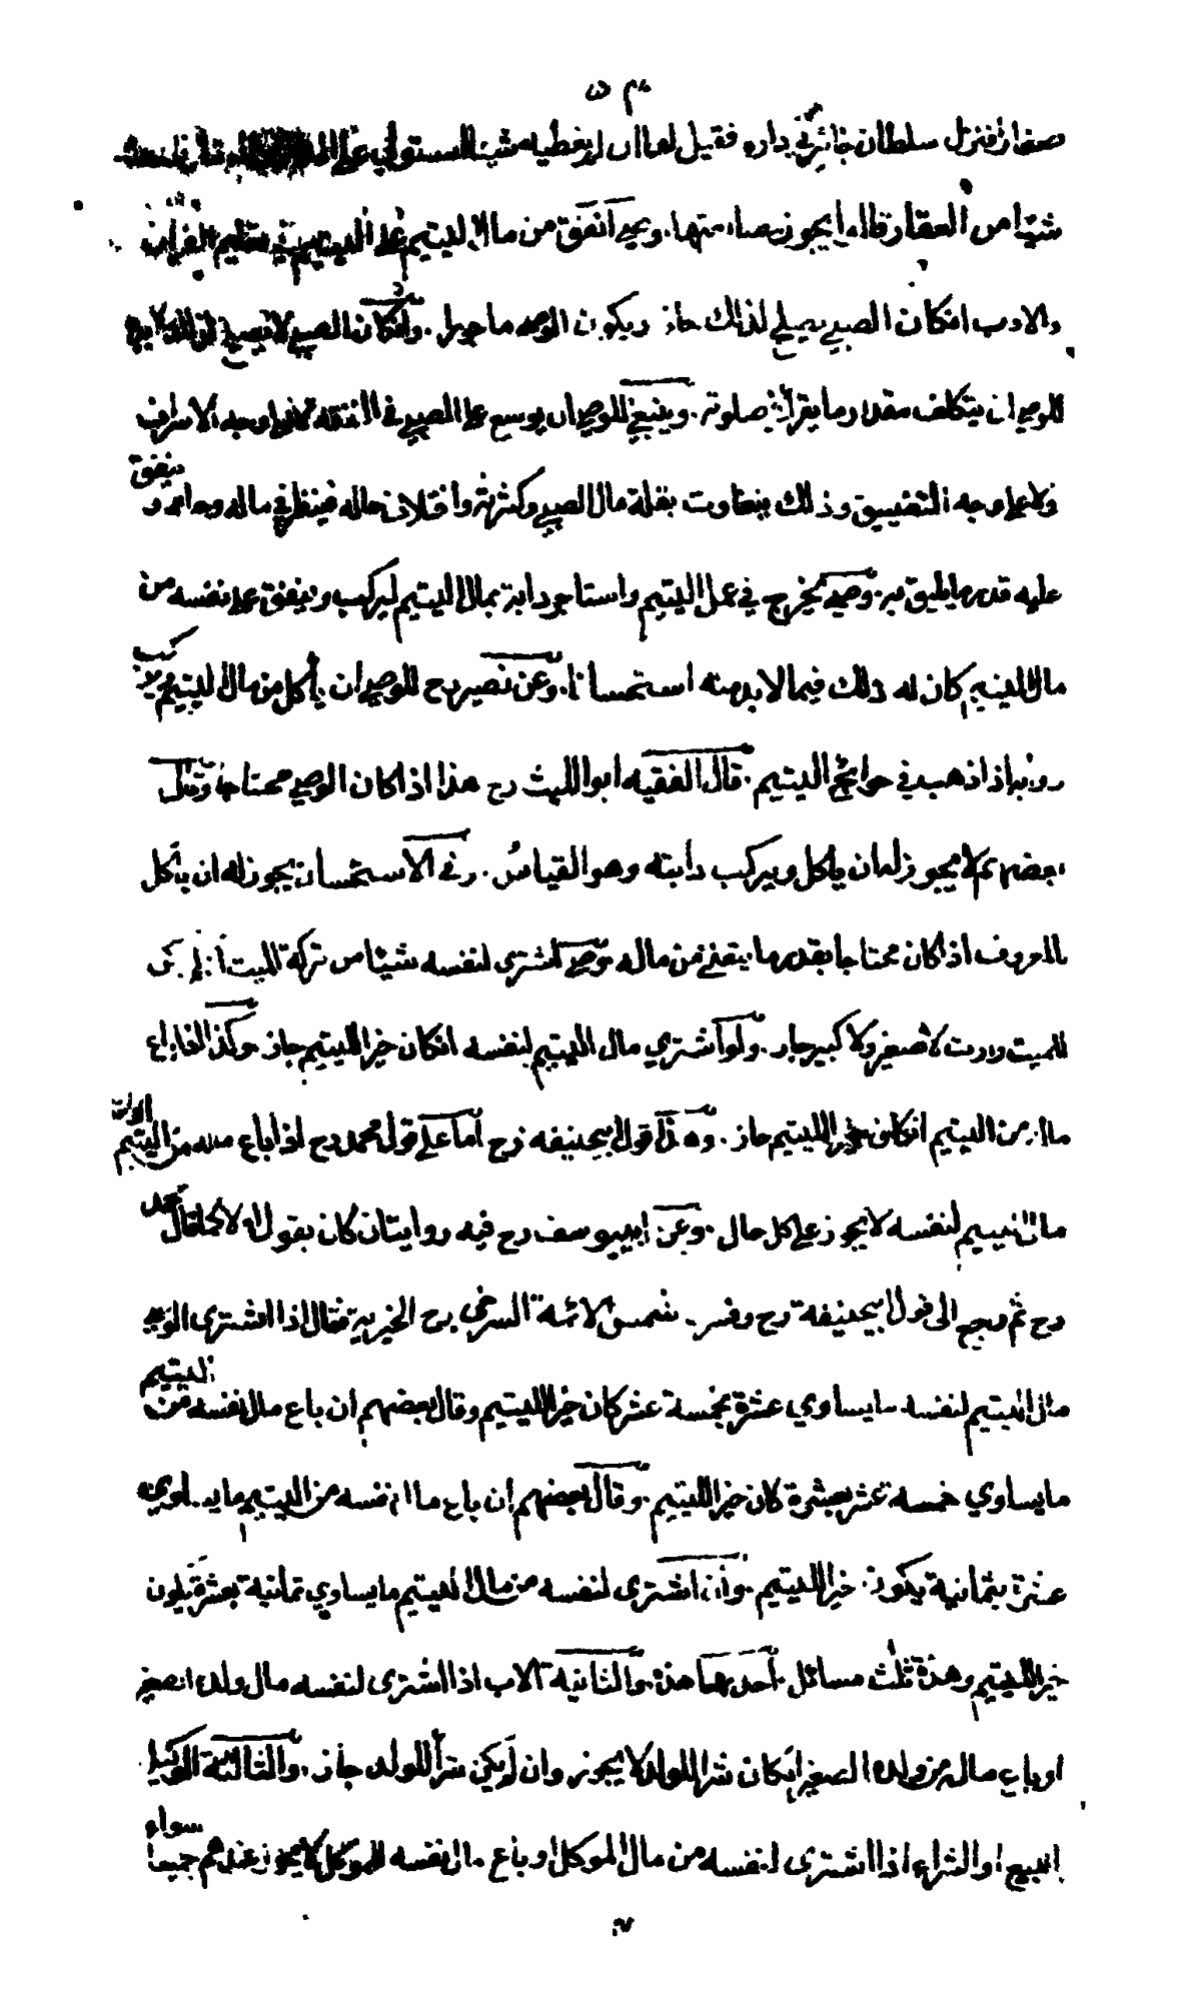 صغارا فنزل سلطان جائر في داره فقيل لها ان لم تعطيه شيئا استولى على
شيئا من العقار قالوا يجوز مصانعتها. وصي انفق من مال اليتيم على اليتيم في تعليم القرآن
والادب انكان الصبي يصلح لذلك جاز ويكون الوصي ماجورا. وانكان الصبي لا يصلح لذلك لابد
للوصي ان يتكلف مقدار ما يقرأ في صلوته. وينبغي للوصي ان يوسع على الصبي في النفقة لا على وجه الاسراف
ولا على وجه التضييق وذلك يتفاوت بقلة مال الصبي وكثرته واختلاف حاله فينظر في ماله وحاله و ينفق
عليه قدر ما يليق به. وصي يخرج في عمل اليتيم واستاجر دابة بمال اليتيم ليركب وينفق على نفسه من
مال اليتيم كان له ذلك فيما لابد منه استحسانا. وعن نصير رح للوصي ان يأكل من مال اليتيم ويركب
دوابه اذا ذهب في حوائج اليتيم. قال الفقيه ابو الليث رح هذا اذا كان الوصي محتاجا وقال
بعضهم لا يجوز له ان يأكل ويركب دابته وهو القياس. وفي الاستحسان يجوز له ان يأكل
بالمعروف اذا كان محتاجا بقدر ما يتعنى من ماله وصي اشترى لنفسه شيئا من تركة الميت ان لم يكن
للميت وارث لا صغير ولا كبير جاز. ولو اشترى مال اليتيم لنفسه انكان خيرا لليتيم جاز وكذا اذا باع
ماله من اليتيم انكان خيرا لليتيم جاز. وهذا قول ابيحنيفه رح اما على قول محمد رح اذا باع ماله من اليتيم او اشترى
مال اليتيم لنفسه لا يجوز على كل حال. وعن ابييوسف رح فيه روايتان كان يقول اولا كما قال محمد
رح ثم رجع الى قول ابيحنيفة رح وفسر شمس الائمة السرخسي رح الخيرية فقال اذا اشترى الوصي
مال اليتيم لنفسه ما يساوي عشرة بخمسة عشر كان خيرا لليتيم وقال بعضهم ان باع مال نفسه من اليتيم
ما يساوي خمسة عشر بعشرة كان خيرا لليتيم. وقال بعضهم ان باع مال نفسه من اليتيم ما يساوي
عشرة بثمانية يكون خيرا لليتيم. وان اشترى لنفسه من مال اليتيم ما يساوي ثمانية بعشرة يكون
خيرا لليتيم وهذه ثلث مسائل. احدهما هذه. والثانية الاب اذا اشترى لنفسه مال ولده الصغير
او باع ماله من ولده الصغير انكان شرا للولد لا يجوز وان لم يكن شرا للولد جاز. والثالثة الوكيل
بالبيع او الشراء اذا اشترى لنفسه من مال الموكل او باع مال نفسه للموكل لا يجوز عندهم جميعا سواء